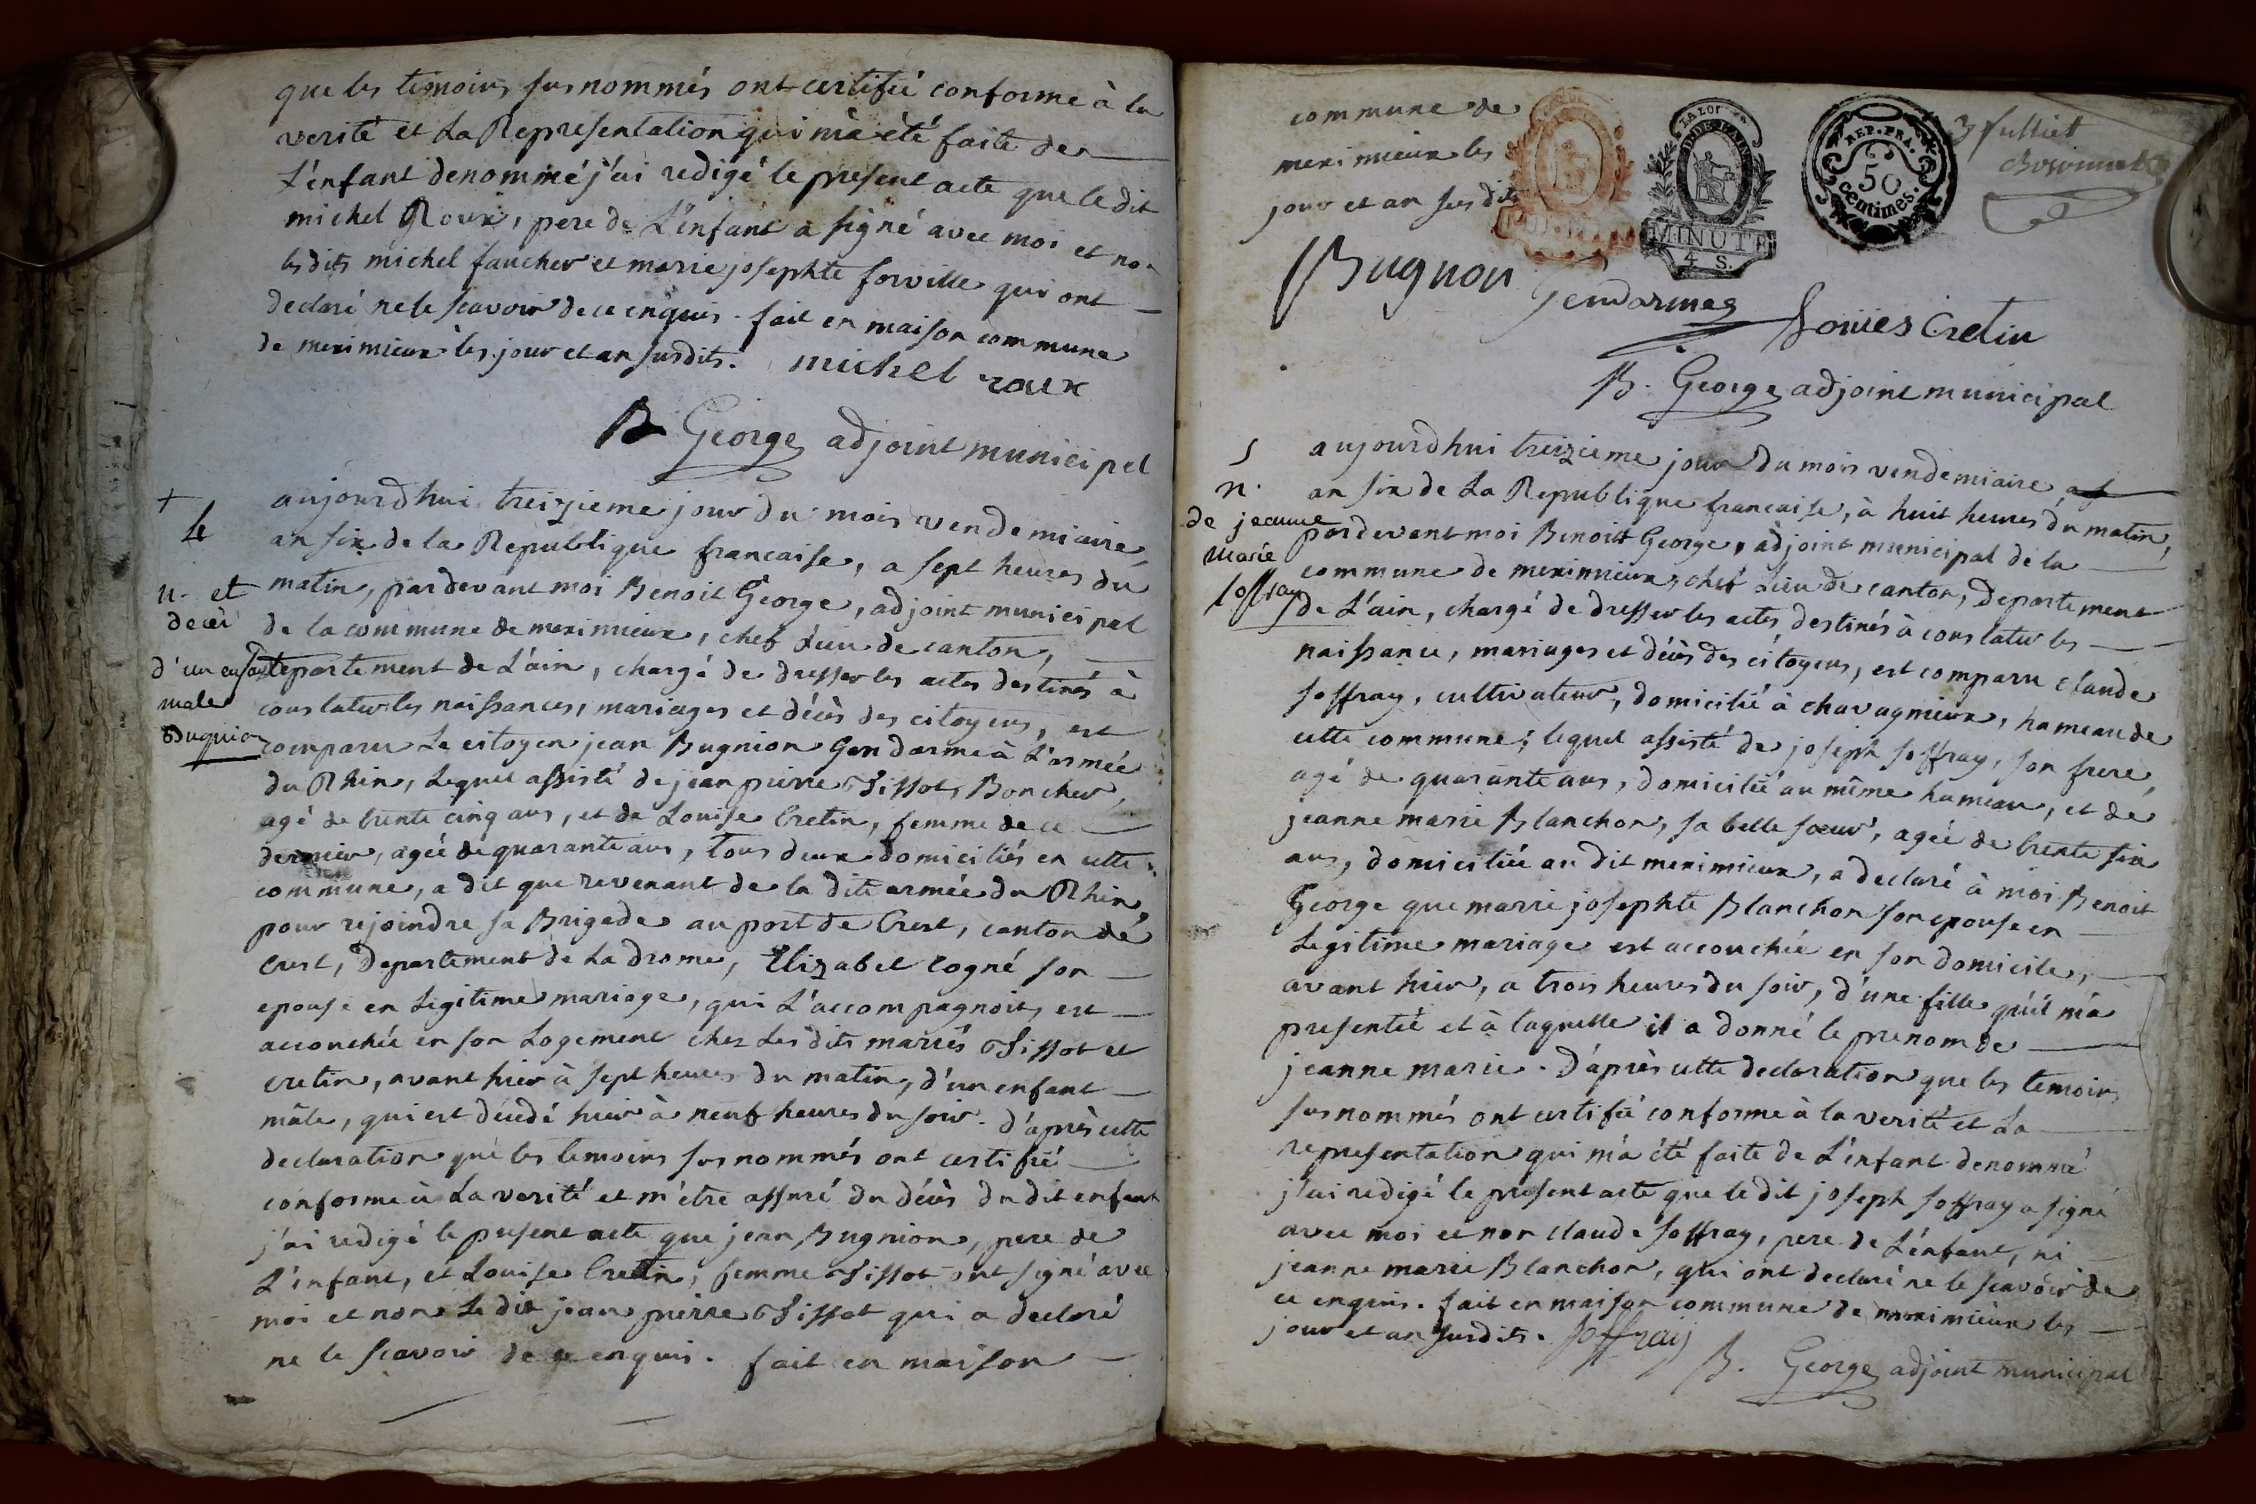 que les temoins susnommés ont certifié conforme à la
verité et La Representation qui m'a été faite de
L'enfant denommé j'ai redigé le present acte que le dit
michel Roux, pere de L'enfant a signé avec moi et non
lesdits michel faucher et marie josephte forville qui ont
declaré ne le scavoir de ce enquis. fait en maison commune
de meximieux les jour et an susdits. michel roux
B. George adjoint municipal
+
4
n. et
decès
d'un enfant
male
Bugnion
aujourdhui treizieme jour du mois vendemiaire,
an six de la Republique francaise, a sept heures du
matin, pardevant moi Benoit George, adjoint municipal
de la commune de meximieux, chef Lieu de canton,
departement de L'ain, chargé de dresser les actes destinés à
constater les naissances, mariages et décès des citoyens, est
comparu Le citoyen jean Bugnion Gendarme à L'armée
du Rhin, Lequel assisté de jean pierre Tissot, Boucher,
agé de trente cinq ans, et de Louise Cretin, femme de ce
dernier, agée de quarante ans, tous deux domiciliés en cette
commune, a dit que revenant de la dite armée du Rhin,
pour rejoindre sa Brigade au port de Crest, canton de
Crest, Departement de La drome, Elizabet Cogné son
epouse en Legitime mariage, qui L'accompagnoit, est
accouchée en son Logement chez Lesdits mariés Tissot et
cretin, avant hier à sept heures du matin, d'un enfant
mâle, qui est décédé hier à neuf heures du soir. d'après cette
declaration que les temoins susnommés ont certifié
conforme à La verité et m'etre assuré du décès du dit enfant
j'ai redigé le present acte que jean Bugnion, pere de
L'enfant, et Louise Cretin, femme Tissot ont signé avec
moi et non Le dit jean pierre Tissot qui a declaré
ne le scavoir de ce enquis. fait en maison
commune de
meximieux les
jour et an susdits
LA LOI
MINUTE
4 S.
REP. FRA.
50
centimes.
Bugnon
Gendarmes
Louïes Cretin
B. George adjoint municipal
5
n.
de jeanne
marie
soffray
aujourdhui treizieme jour du mois vendemiaire
an six de La Republique francaise, à huit heures du matin,
pardevant moi Benoit George, adjoint municipal de la
commune de meximieux, chef Lieu de canton, departement
de L'ain, chargé de dresser les actes destinés à constater les
naissance, mariages et décès des citoyens, est comparu claude
soffray, cultivateur, domicilié à chavagnieux, hameau de
cette commune; lequel assisté de joseph soffray, son frere,
agé de quarante ans, domicilié au même hameau, et de
jeanne marie Blanchon, sa belle soeur, agée de trente six
ans, domiciliée au dit meximieux, a declaré à moi Benoit
George que marie josephte Blanchon son epouse en
Legitime mariage est accouchée en son domicile,
avant hier, a trois heures du soir, d'une fille qu'il m'a
presentée et à laquelle il a donné le prenom de
jeanne marie. D'après cette declaration que les temoins
susnommés ont certifié conforme à la verité et La
representation qui m'a été faite de L'enfant denommé
j'ai redigé le present acte que le dit joseph soffray a signé
avec moi et non claude soffray, pere de L'enfant, ni
jeanne marie Blanchon, qui ont declaré ne le scavoir de
ce enquis. fait en maison commune de meximieux les
jour et an susdits. soffraij
B. George adjoint municipal